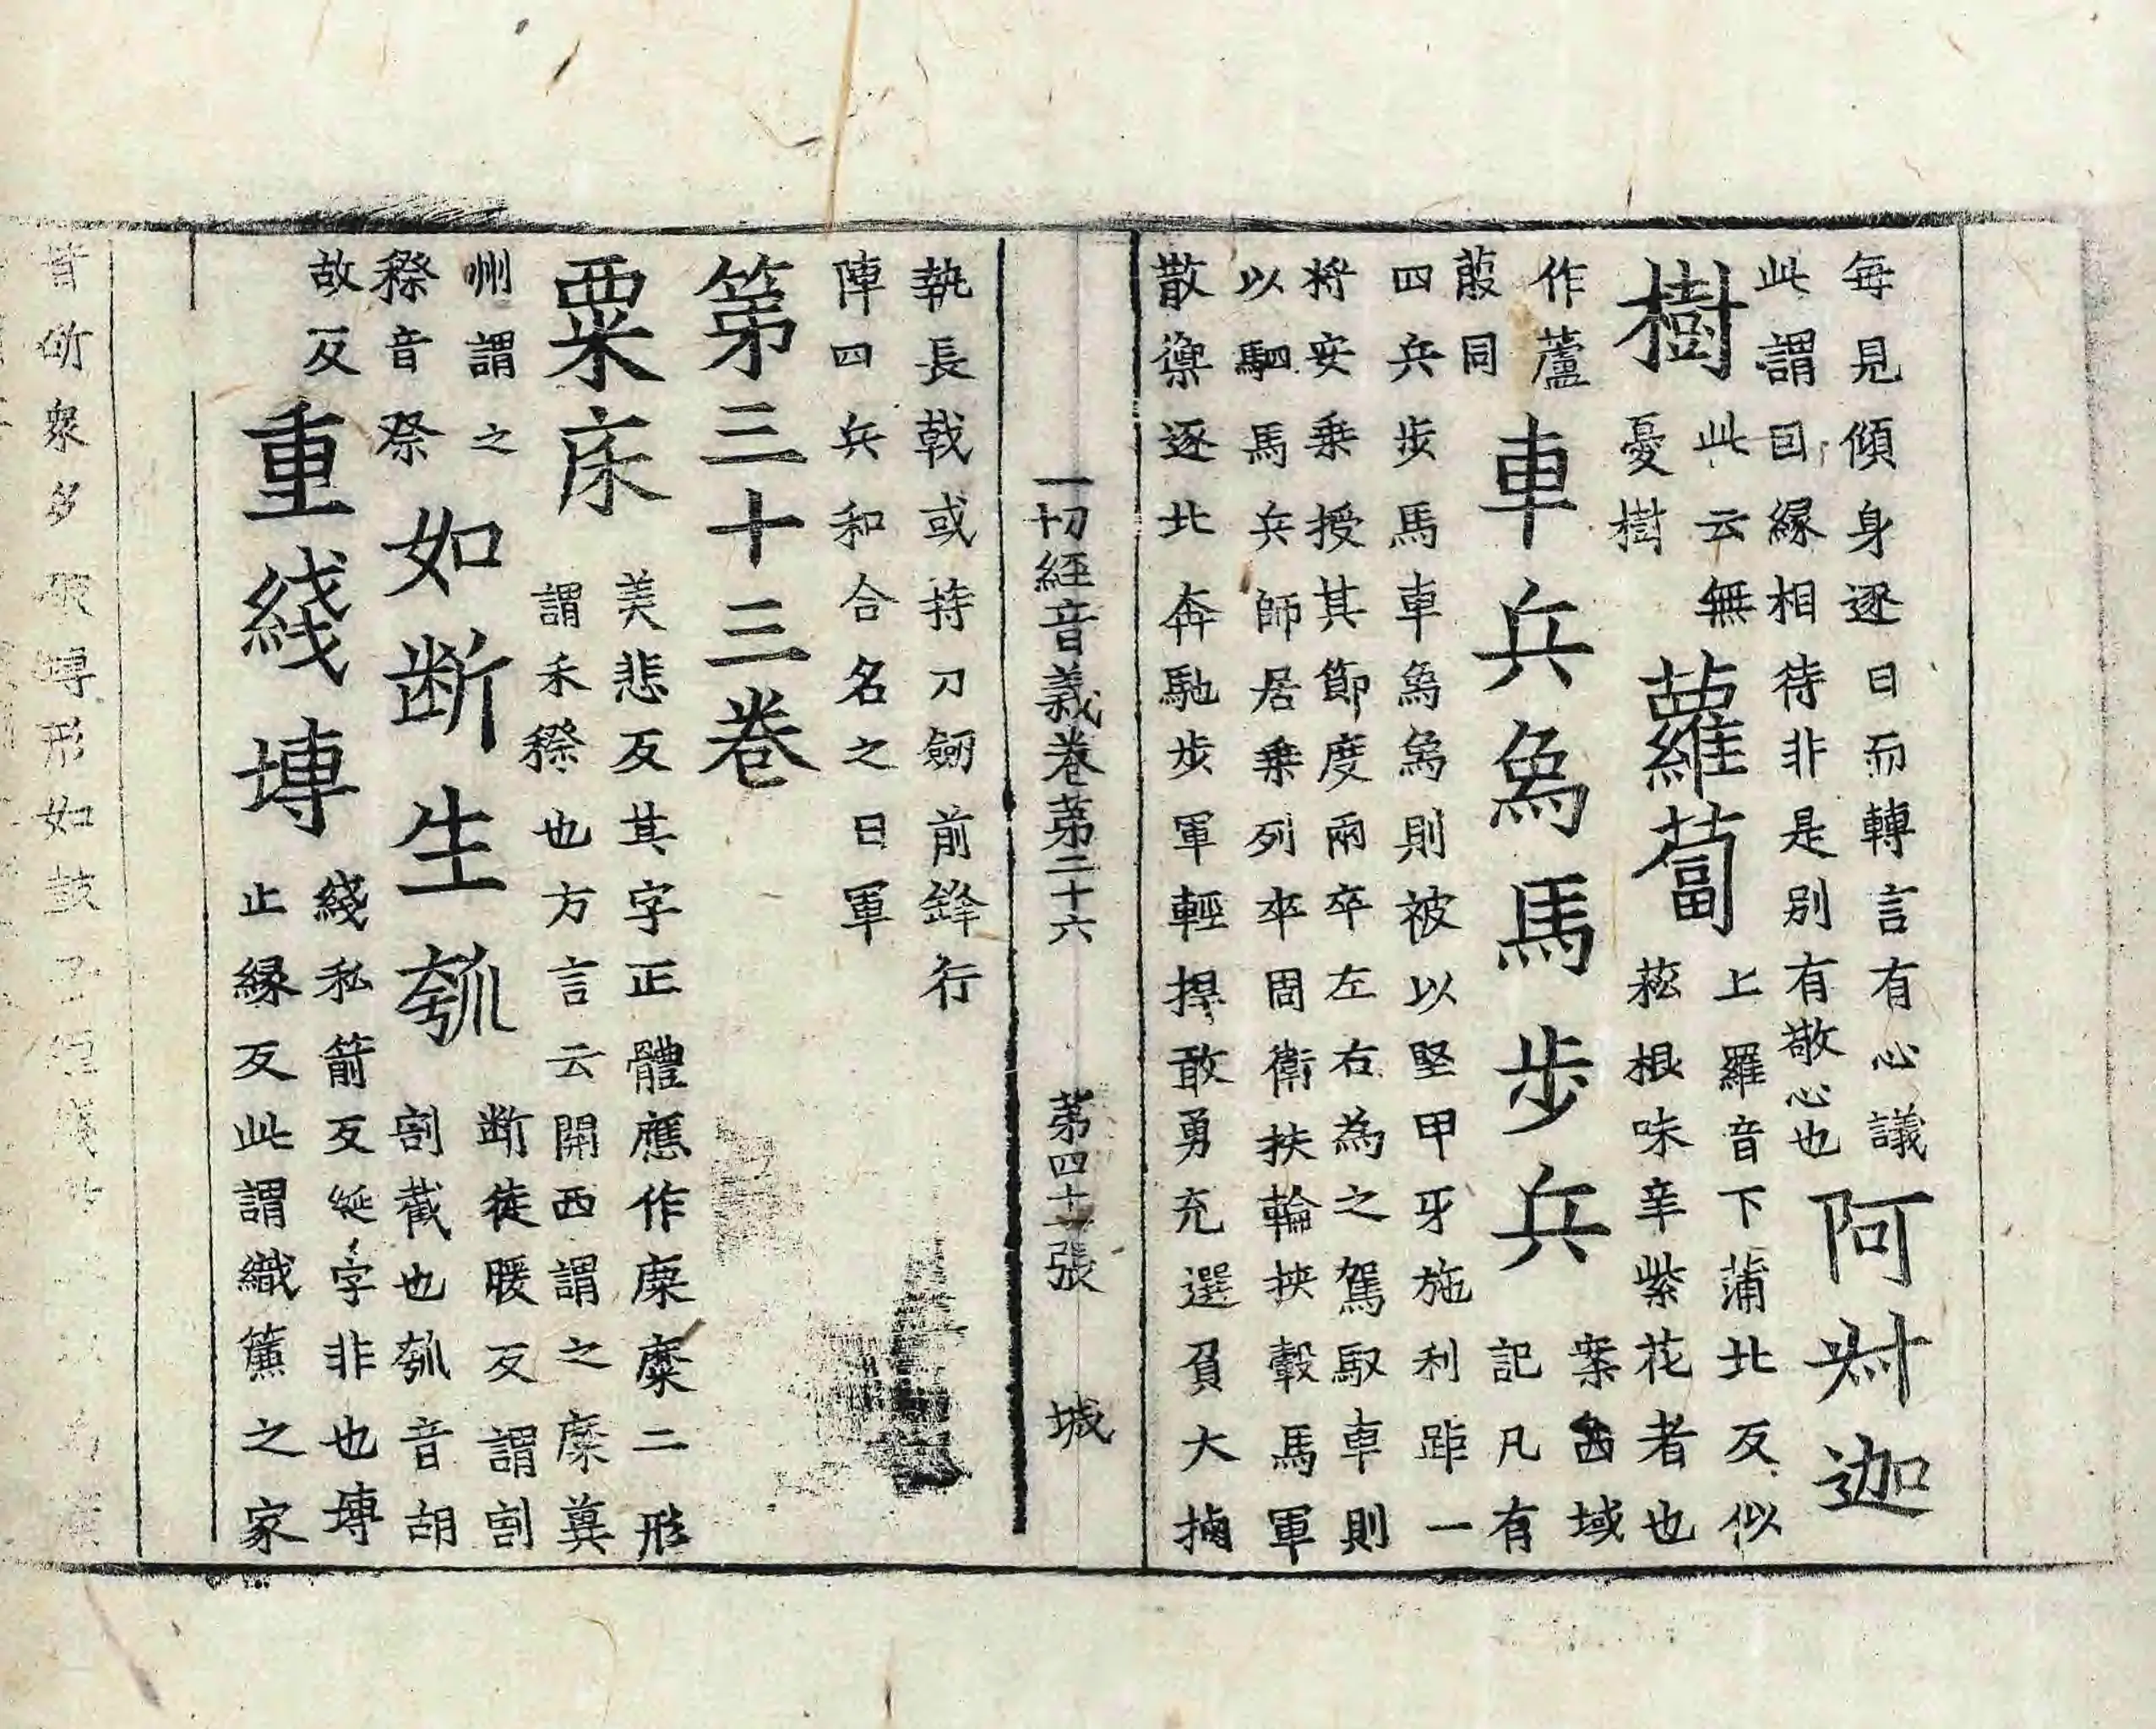 每見傾身逐日而轉言有心議
此謂因緣相待非是别有敬心也
阿㝵迦
樹
此云無
憂樹
蘿蔔
上羅音下蒲北反似
菘根味辛紫花者也
作蘆
菔同
車兵象馬步兵
案西域
記凡有
四兵步馬車象象則被以堅甲牙施利距一
將安乘授其節度兩卒左右為之駕馭車則
以駟馬兵師居乗列卒周衛扶輪挾轂馬軍
散禦逐北奔馳步軍輕捍敢勇充選負大
一切經音義卷第二十六 第四十一張 城
執長戟或持刀劒前鋒行
陣四兵和合名之曰軍
第三十三卷
粟床
美悲反其字正體應作𪎭糜二形
謂禾穄也方言云開西謂之𪎭冀
州謂之
穄音祭
如断生瓠
断徒暖反謂割
割截也瓠音胡
故反
重綫塼
綫私箭反綖字非也塼
止緣反此謂織簾之家